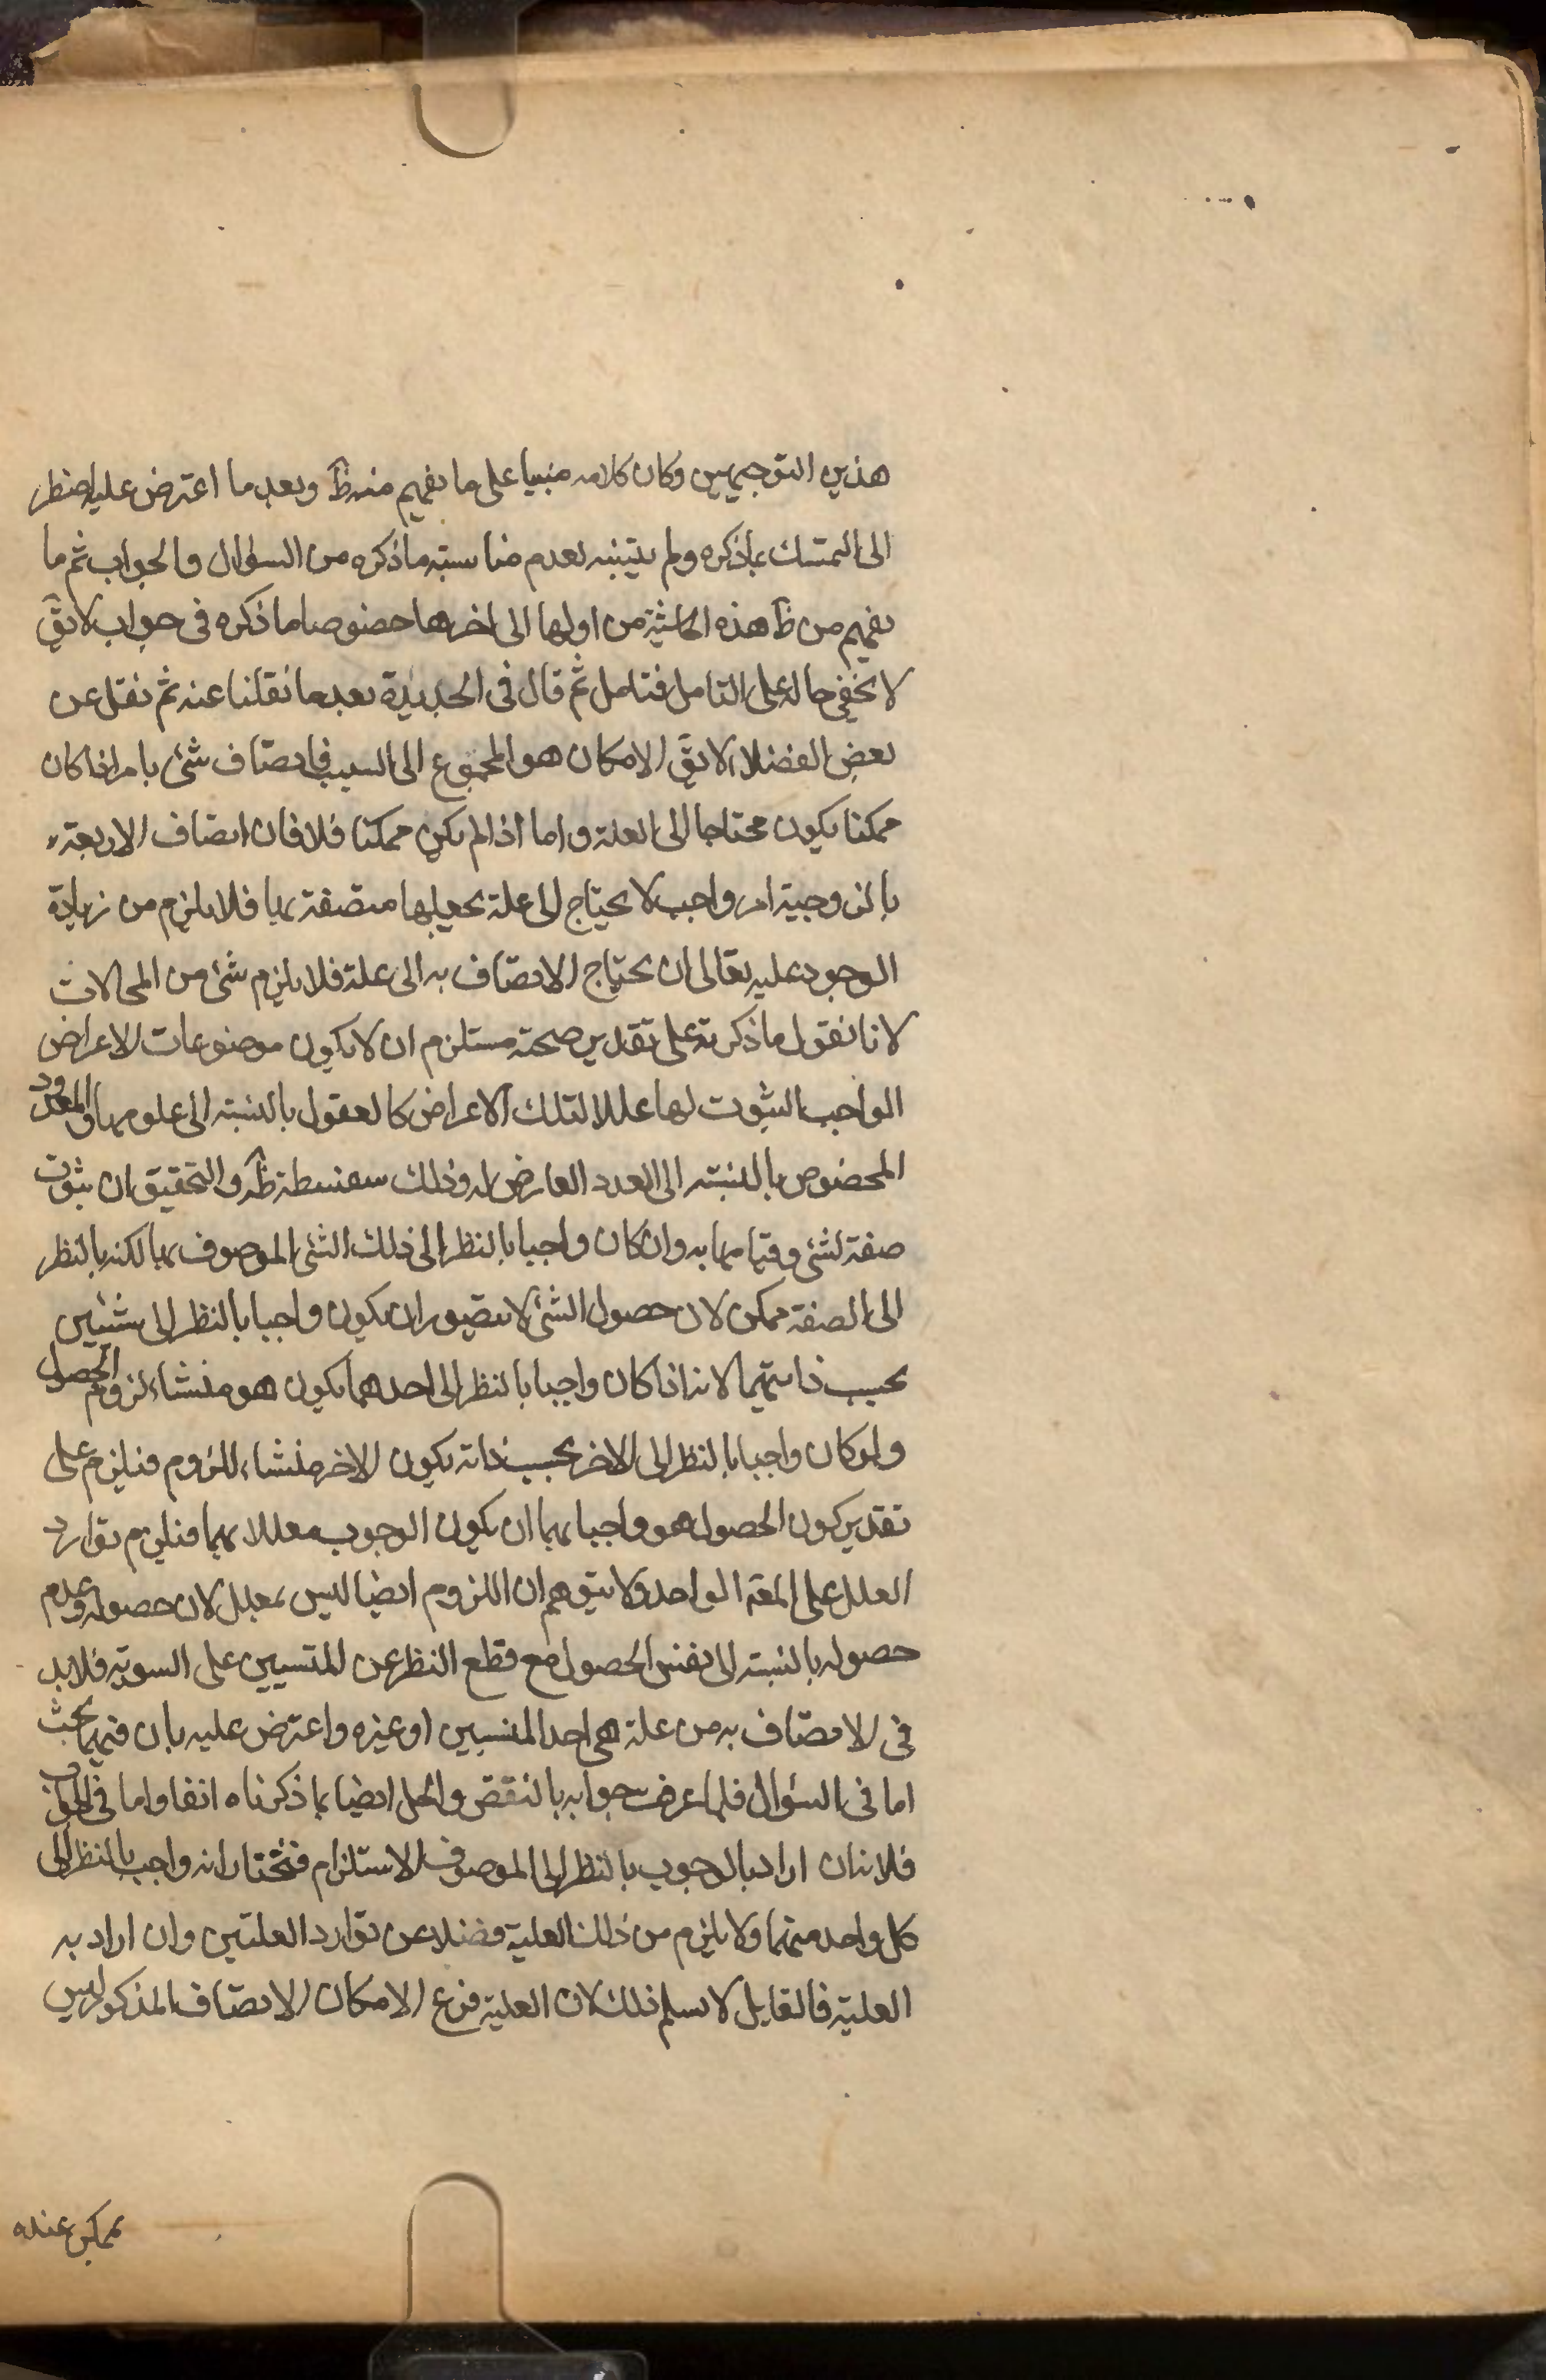 هذين التوجيهين وكان كلامه مبنيا على ما يفهم منه ظ وبعد ما اعترض عليه اضطر
الى التمسك بما ذكره ولم يتنبه لعدم مناسبته ما ذكره من السؤال والجواب ثم ما
يفهم من ظ هذه الحاشية من اولها الى اخرها خصوصا ما ذكره في جواب لا يق
لا يخفى حاله على التامل فتامل ثم قال في الجديدة بعد ما نقلنا عنه ثم نقل عن
بعض الفضلاء لا يق الامكان هو المحوج الى السبب فاتصاف شئ بامر اذا كان
ممكنا يكون محتاجا الى العلة واما اذا لم يكن ممكنا فلا فان اتصاف الاربعة
بالزوجية امر واجب لا يحتاج الى علة يجعلها متصفة بها فلا يلزم من زيادة
الوجود عليه تعالى ان يحتاج الاتصاف به الى علة فلا يلزم شئ من المحالات
لانا نقول ما ذكرته على تقدير صحته مستلزم ان لا يكون موضوعات الاعراض
الواجب الثبوت لها عللا لتلك الاعراض كالعقول بالنسبة الى علومها والمعدود
المخصوص بالنسبة الى العدد العارض له وذلك سفسطة ظ والتحقيق ان ثبوت
صفة لشئ وقيامها به وان كان واجبا بالنظر الى ذلك الشئ الموصوف بها لكنه بالنظر
الى الصفة ممكن لان حصول الشئ لا يتصور ان يكون واجبا بالنظر الى شيئين
بحسب ذاتيهما لانه اذا كان واجبا بالنظر الى احدهما يكون هو منشاء لزوم الحصول
ولو كان واجبا بالنظر الى الاخر بحسب ذاته يكون الاخر منشاء اللزوم فيلزم على
تقدير كون الحصول هو واجبا بهما ان يكون الوجوب معللا بهما فيلزم توارد
العلل على المعة الواحد ولا يتوهم ان اللزوم ايضا ليس بمعلل لان حصوله وعدم
حصوله بالنسبة الى نفس الحصول مع قطع النظر عن المنتسبين على السوية فلا بد
في الاتصاف به من علة هي احد المنتسبين او غيره واعترض عليه بان فيهما بحث
اما في السؤال فلما عرفت جوابه بالنقض والحل ايضا بما ذكرناه انفا واما في الجواب
فلانه ان اراد بالوجوب بالنظر الى الموصوف الاستلزام فنختار انه واجب بالنظر الى
كل واحد منهما ولا يلزم من ذلك العلية فضلا عن توارد العلتين وان اراد به
العلية فالقايل لا يسلم ذلك لان العلية فرع الامكان الاتصاف المذكور ليس
بممكن عنده